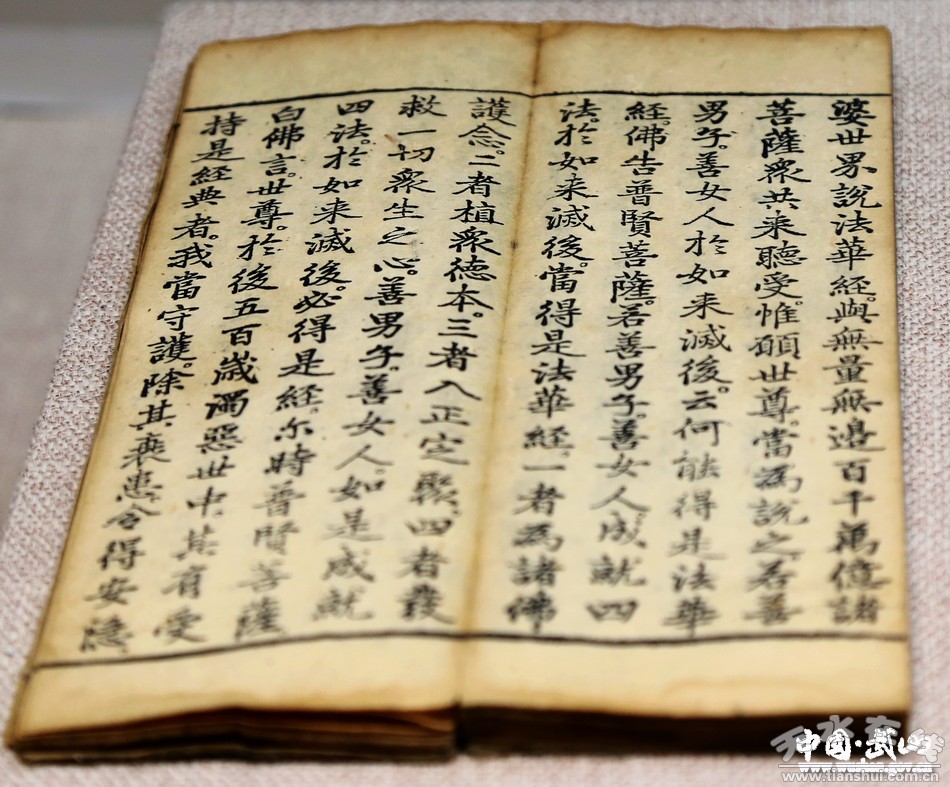 婆世界說法華經。與無量無邊百千萬億諸
菩薩衆共来聽受。惟願世尊。當為說之。若善
男子。善女人於如来滅後。云何能得是法華
經。佛告普賢菩薩。若善男子。善女人成就四
法。於如来滅後。當得是法華經。一者為諸佛
護念。二者植衆德本。三者入正定聚。四者發
救一切衆生之心。善男子。善女人。如是成就
四法。於如来滅後。必得是經。尔時普賢菩薩
白佛言。世尊。於後五百歲濁惡世中。其有受
持是經典者。我當守護。除其衰患。令得安隱
中國·武山
www.tianshui.com.cn